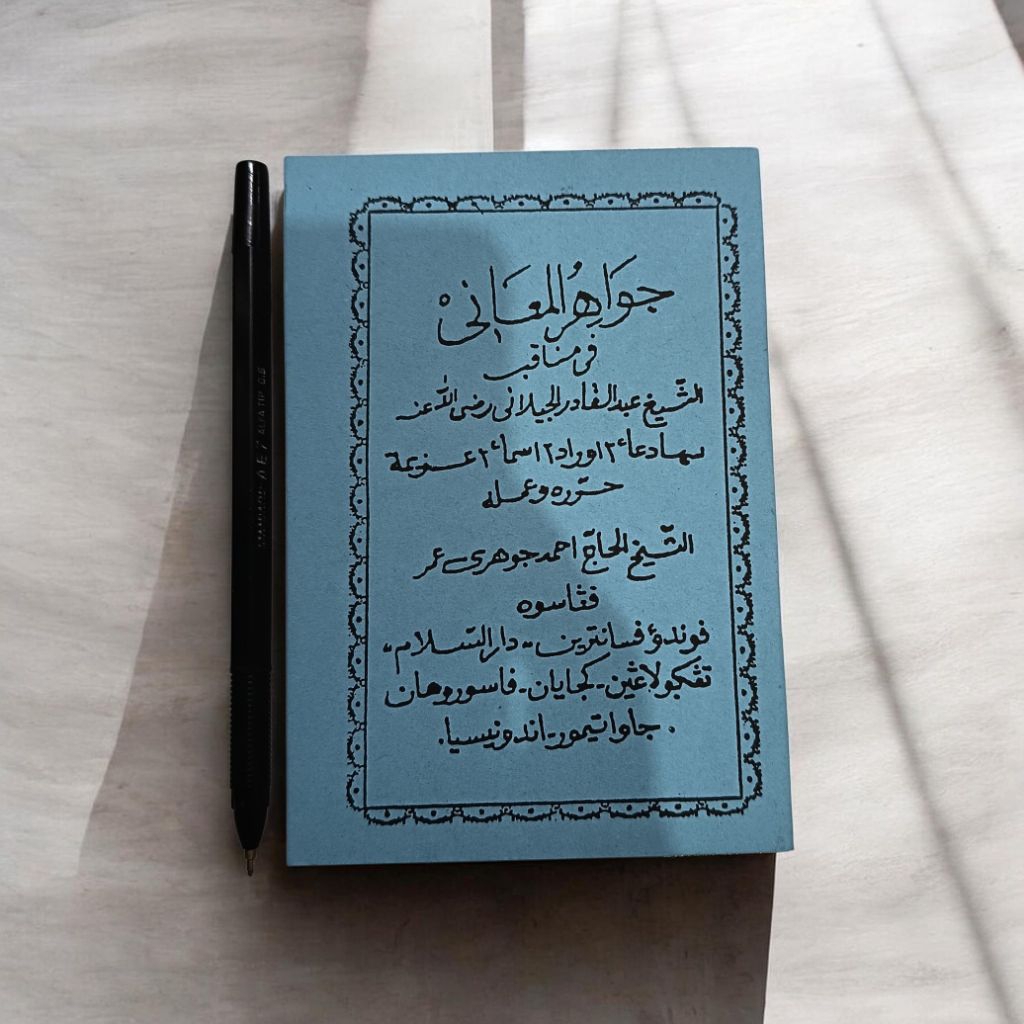 جَوَاهِرُ الْمَعَانِىْ
فى مناقب
الشّيخ عبد القادر الجيلانى رضى اللّٰه عنه
سها دعاء٢ اوراد٢ اسماء٢ عزيمة
حرّره وعمله
الشّيخ الحاجّ احمد جوهرى عمر
فڠاسوه
فوندؤ فسانترين „دار السّلام„
تڠكولاڠين - كجايان - فاسوروهان
. جاوا تيمور - اندونيسيا .
STANDARD AE7 ALFA TIP 0.5